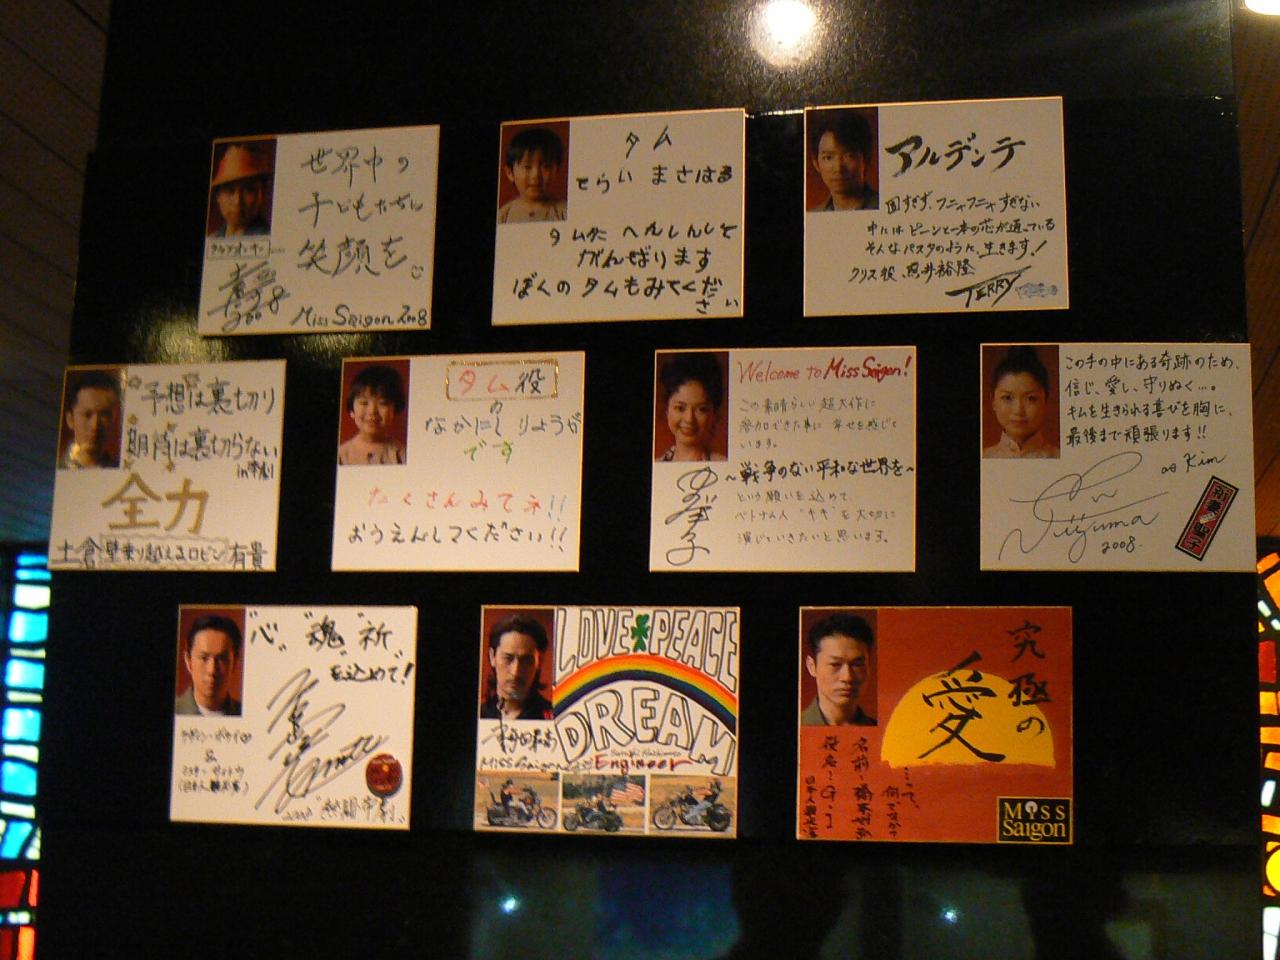 世界中の
子どもたちに
笑顔を
2008
Miss Saigon 2008
タム
てらい まさはる
タムに へんしんして
がんばります
ぼくの タムもみてくだ
さい
アルデンテ
固すぎず、フニャフニャすぎない
中にはピーンと一本の芯が通っている
そんなパスタのように、生きます!
クリス役、照井裕隆
TERRY
予想は裏切り
期待は裏切らない
in帝劇
全力
土倉 壁乗り越えるロビン 有貴
タム役
なかにし りょうが
の
です
たくさんみてネ!!
おうえんしてください!!
Welcome to Miss Saigon!
この素晴らしい超大作に
参加できた事に 幸せを感じて
います。
~戦争のない平和な世界を~
という願いを込めて、
ベトナム人 "キキ" を大切に
演じていきたいと思います。
この手の中にある奇跡のため、
信じ、愛し、守りぬく…。
キムを生きられる喜びを胸に、
最後まで頑張ります!!
Kim
Niizuma
2008.
"心" "魂" "祈"
を込めて!
&
(日本人観光客)
2008
LOVE PEACE
DREAM
Miss Saigon
Engineer
究極の
愛
Miss
Saigon